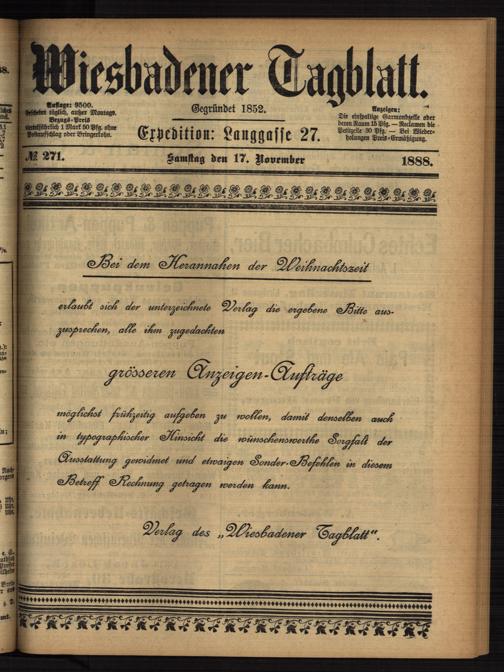 Wiesbadener Tagblatt.
Auflage: 9500.
Erscheint täglich, außer Montags.
Bezugs-Preis
vierteljährlich 1 Mark 50 Pfg. ohne
Postaufschlag oder Bringerlohn.
Gegründet 1852.
Expedition: Langgasse 27.
Anzeigen:
Die einspaltige Garmondzeile oder
deren Raum 15 Pfg. — Reclamen die
Petitzeile 30 Pfg. — Bei Wieder-
holungen Preis-Ermäßigung.
№ 271.
Samstag den 17. November
1888.
Bei dem Herannahen der Weihnachtszeit
erlaubt sich der unterzeichnete Verlag die ergebene Bitte aus-
zusprechen, alle ihm zugedachten
grösseren Anzeigen-Aufträge
möglichst frühzeitig aufgeben zu wollen, damit denselben auch
in typographischer Hinsicht die wünschenswerthe Sorgfalt der
Ausstattung gewidmet und etwaigen Sonder-Befehlen in diesem
Betreff Rechnung getragen werden kann.
Verlag des „Wiesbadener Tagblatt".